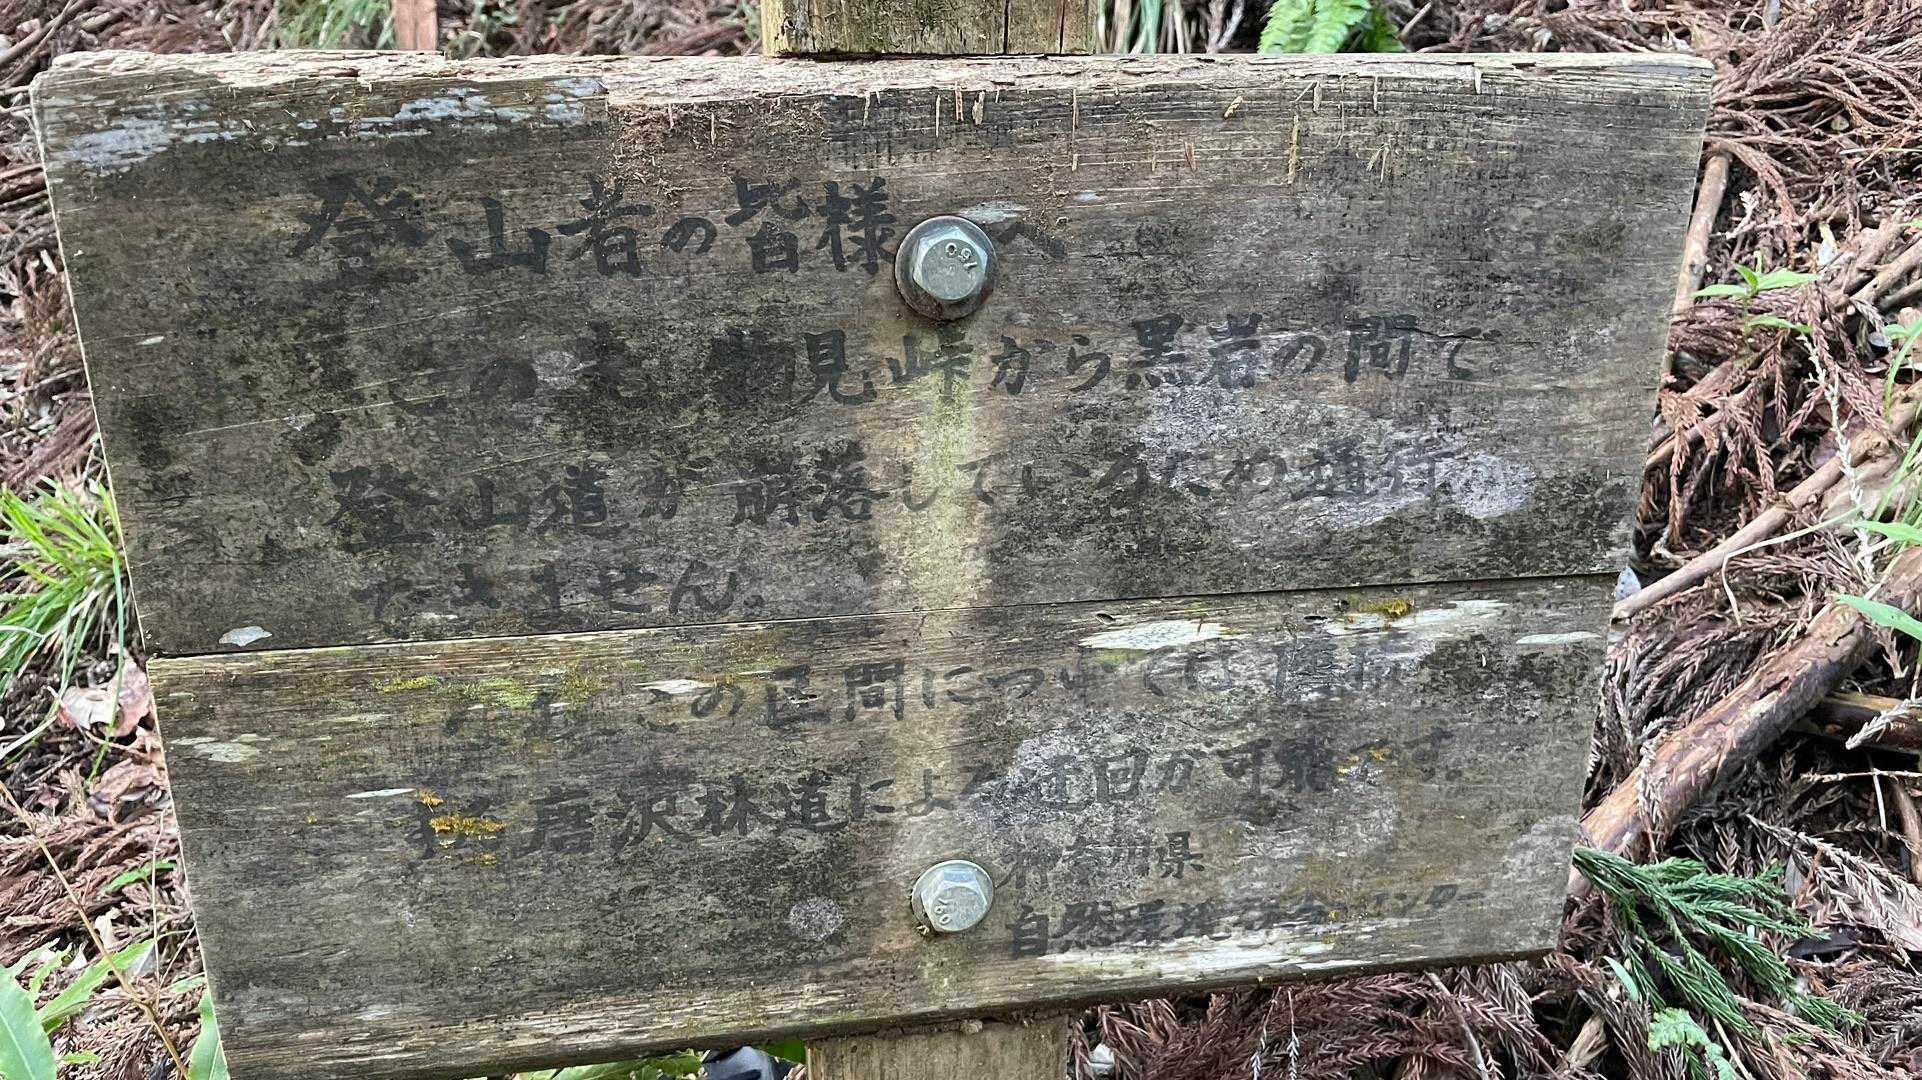 登山者の皆様へ
この先 物見峠から黒岩の間で
登山道が崩落しているため通行
できません。
なお、この区間については
摩沢林道による迂回が可能です。
神奈川県
自然環境保全センター
150
091